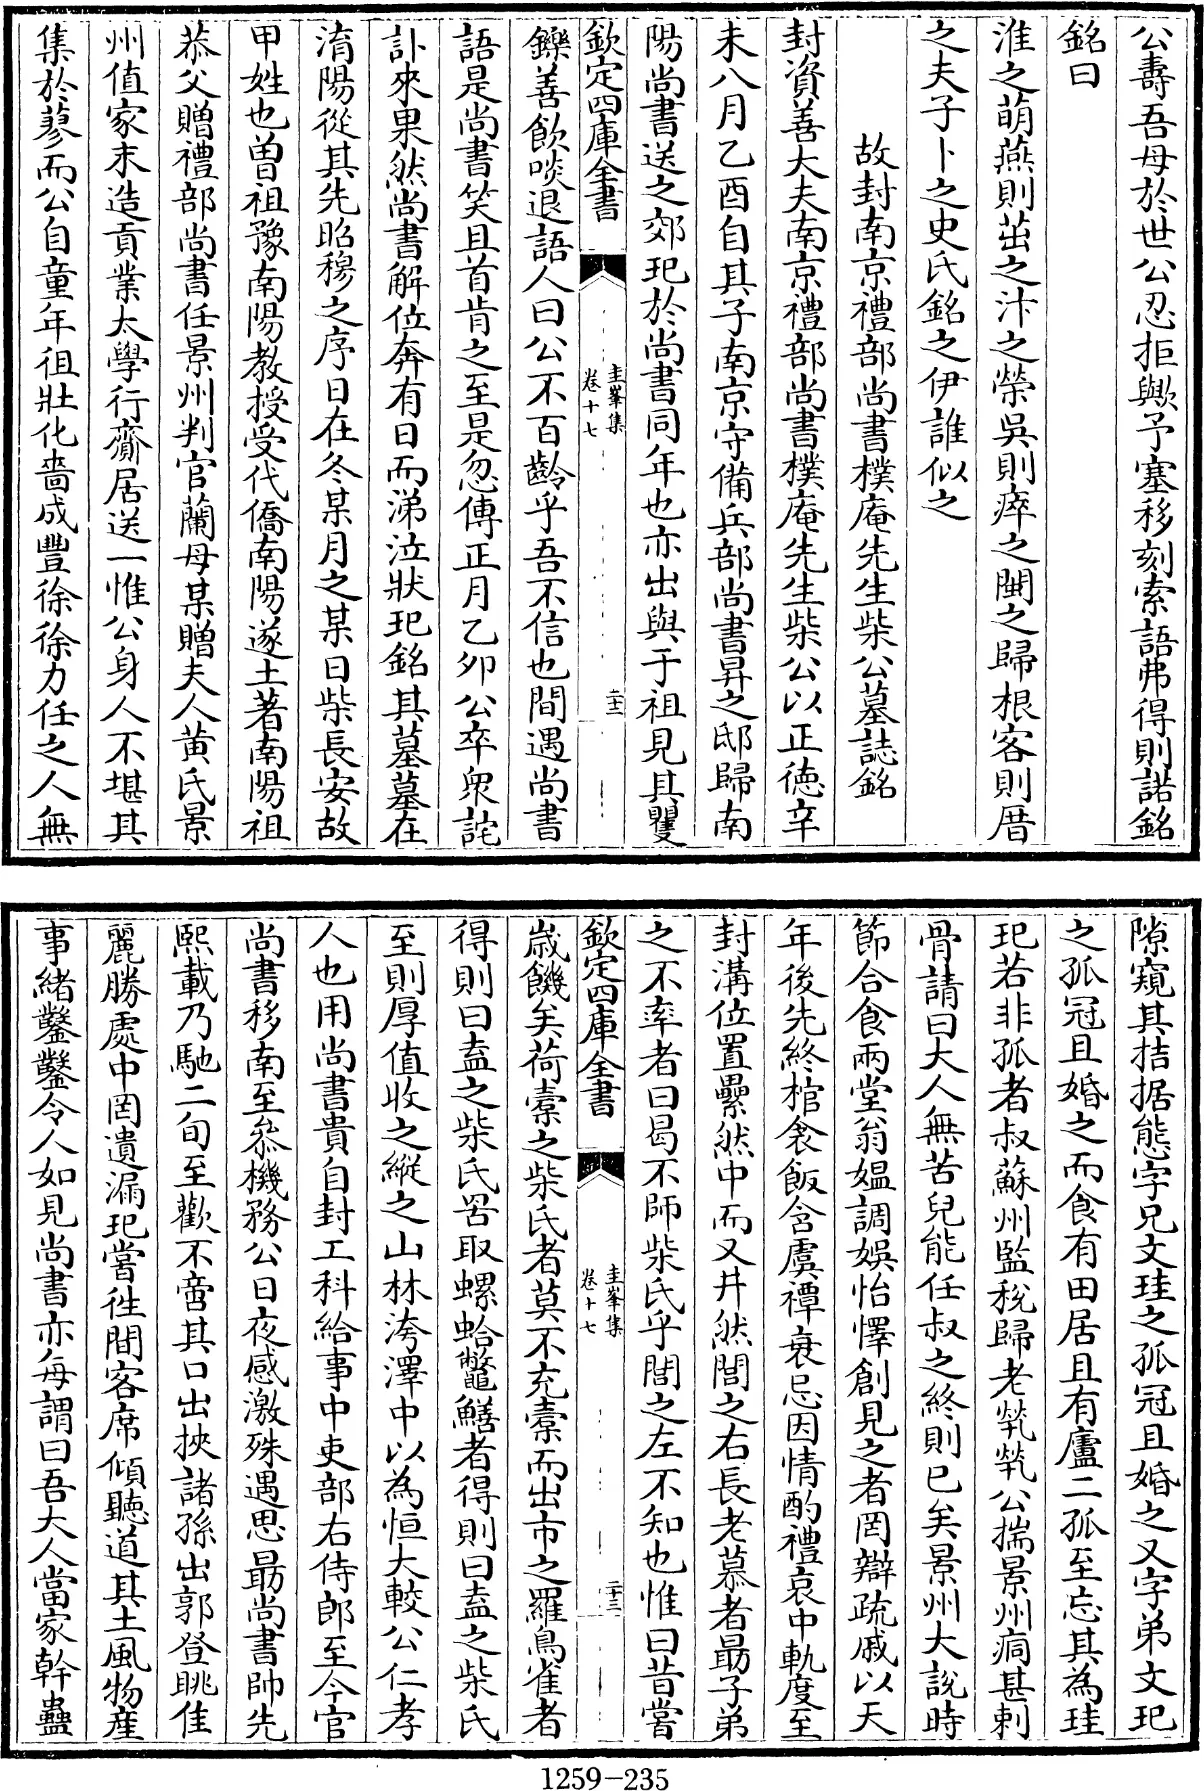 公壽吾母於世公忍拒歟予塞移刻索語弗得則諾銘
銘曰
淮之萌燕則茁之汴之榮吳則瘁之閩之歸根客則厝
之夫子卜之史氏銘之伊誰似之
故封南京禮部尚書樸庵先生柴公墓誌銘
封資善大夫南京禮部尚書樸庵先生柴公以正徳辛
未八月乙酉自其子南京守備兵部尚書昇之邸歸南
陽尚書送之郊玘於尚書同年也亦出與于祖見其矍
欽定四庫全書
圭峯集
卷十七
二十二
鑠善飲啖退語人曰公不百齡乎吾不信也間遇尚書
語是尚書笑且首肯之至是忽傳正月乙夘公卒衆詫
訃來果然尚書解位奔有日而涕泣狀玘銘其墓墓在
淯陽從其先昭穆之序日在冬某月之某日柴長安故
甲姓也曽祖豫南陽教授受代僑南陽遂土著南陽祖
恭父贈禮部尚書任景州判官蘭母某贈夫人黄氏景
州值家末造貢業太學行齎居送一惟公身人不堪其
集於蓼而公自童年徂壯化嗇成豐徐徐力任之人無
隙窺其拮据態字兄文珪之孤冠且婚之又字弟文玘
之孤冠且婚之而食有田居且有廬二孤至忘其為珪
玘若非孤者叔蘇州監稅歸老煢煢公揣景州痌甚刺
骨請曰大人無苦兒能任叔之終則已矣景州大說時
節合食兩堂翁媼調娛怡懌創見之者罔辯疏戚以天
年後先終棺衾飯含虞禫衰忌因情酌禮哀中軌度至
封溝位置纍然中而又井然閭之右長老慕者勗子弟
之不率者曰曷不師柴氏乎閭之左不知也惟曰昔嘗
欽定四庫全書
圭峯集
卷十七
二十三
嵗饑矣荷橐之柴氏者莫不充橐而出市之羅鳥雀者
得則曰盍之柴氏罟取螺蛤鼈鱔者得則曰盍之柴氏
至則厚值收之縱之山林洿澤中以為恒大較公仁孝
人也用尚書貴自封工科給事中吏部右侍郎至今官
尚書移南至叅機務公日夜感激殊遇思勗尚書帥先
熙載乃馳二旬至歡不啻其口出挾諸孫出郭登眺佳
麗勝處中罔遺漏玘嘗徃間客席傾聽道其土風物産
事緒鑿鑿令人如見尚書亦每謂曰吾大人當家幹蠱
1259-235